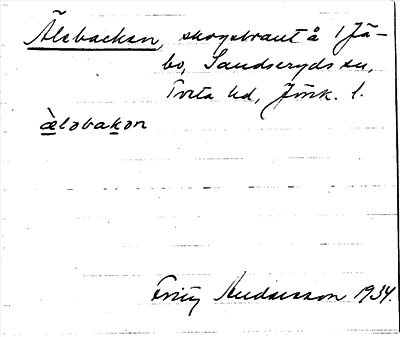 Älabacken, skogsbrant å 1 Jä-
bo, Sandseryds sn,
Tveta hd, Jönk. l.
æ̀lɔbakɔn
Fritz Andersson 1934.